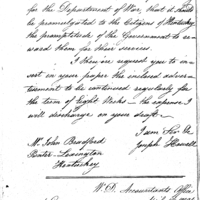 for the Department of War, that it should
be promulgated to the Citizens of Kentucky
the promptitude of the Government to re-
ward them for their services.
I then Sir request you to in-
sert in your paper the inclosed adver-
tisement to be continued regularly for
the term of Eight Weeks — the expense I
will discharge on your draft —
I am Sir &c
Joseph Howell
Mr. John Bradford
Printer - Lexington
Kentucky
W.D. Accountants Office